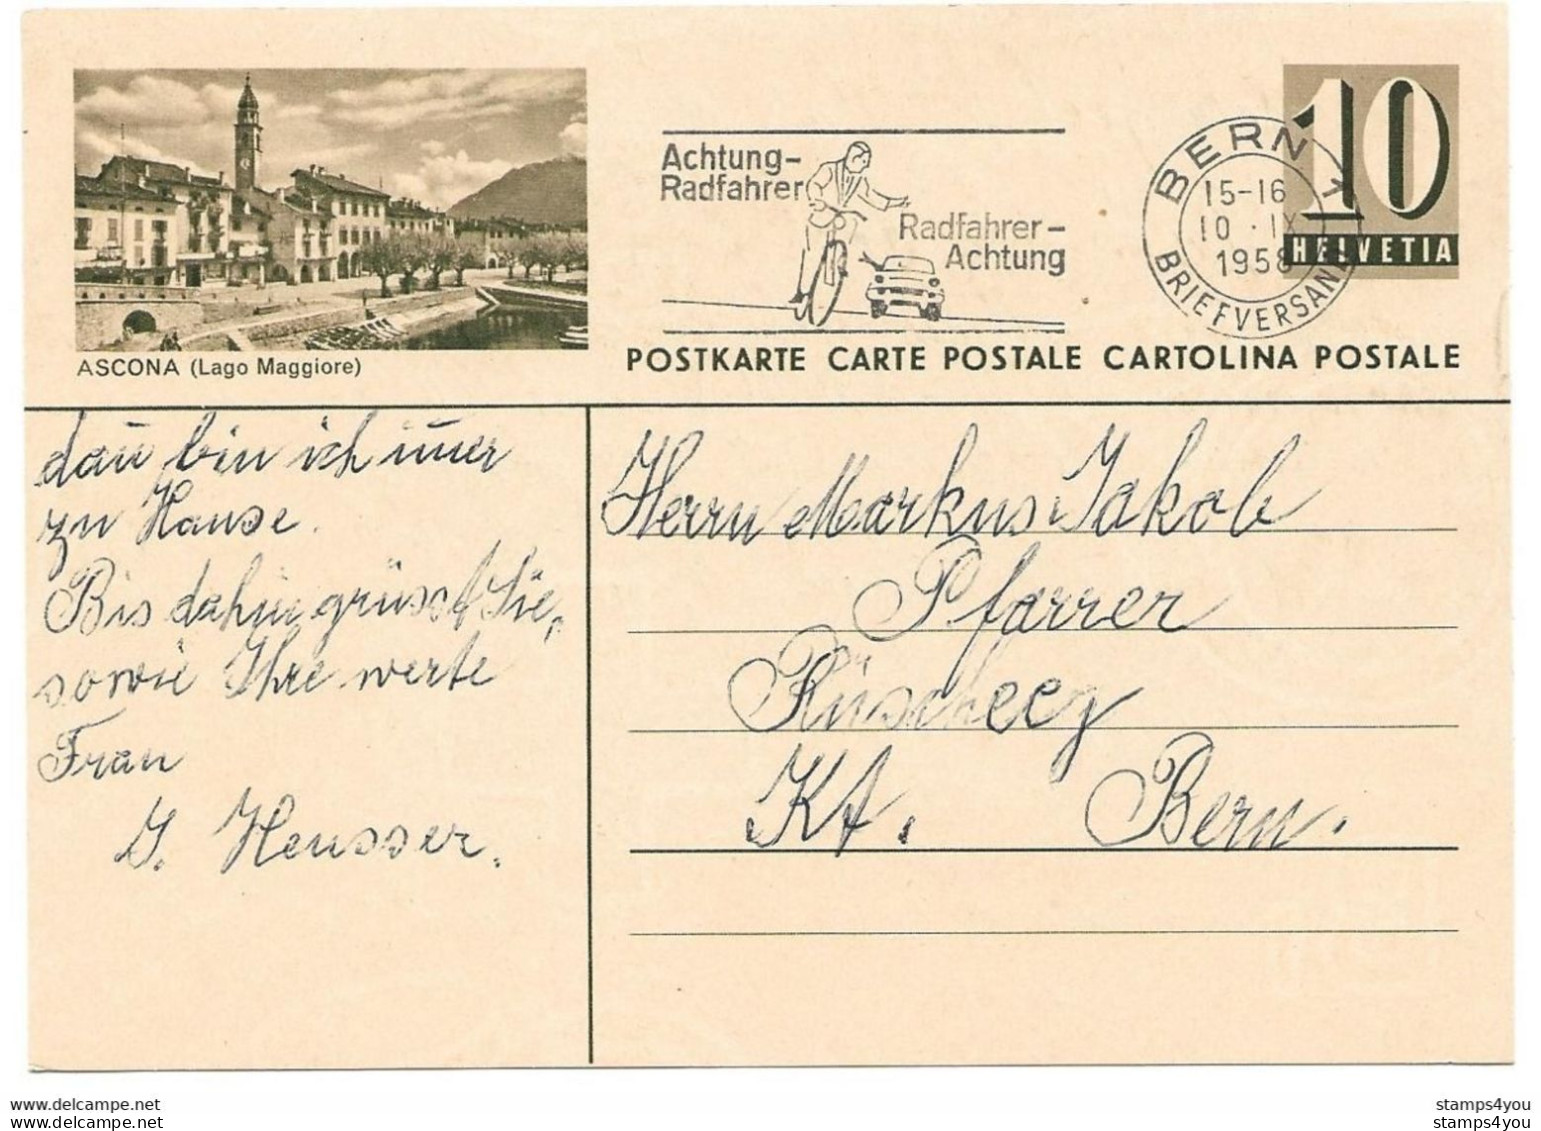 ASCONA (Lago Maggiore)
Achtung-
Radfahrer
Radfahrer-
Achtung
BERN 1
15-16
10·IX
1958
BRIEFVERSAND
10
HELVETIA
POSTKARTE CARTE POSTALE CARTOLINA POSTALE
dan̄ bin ich im̄er
zu Hause.
Bis dahin grüsst Sie,
sowie Ihre werte
Frau
Heusser.
Herrn Markus Jakob
Pfarrer
Rüschegg
Kt. Bern.
www.delcampe.net
www.delcampe.net
stamps4you
stamps4you